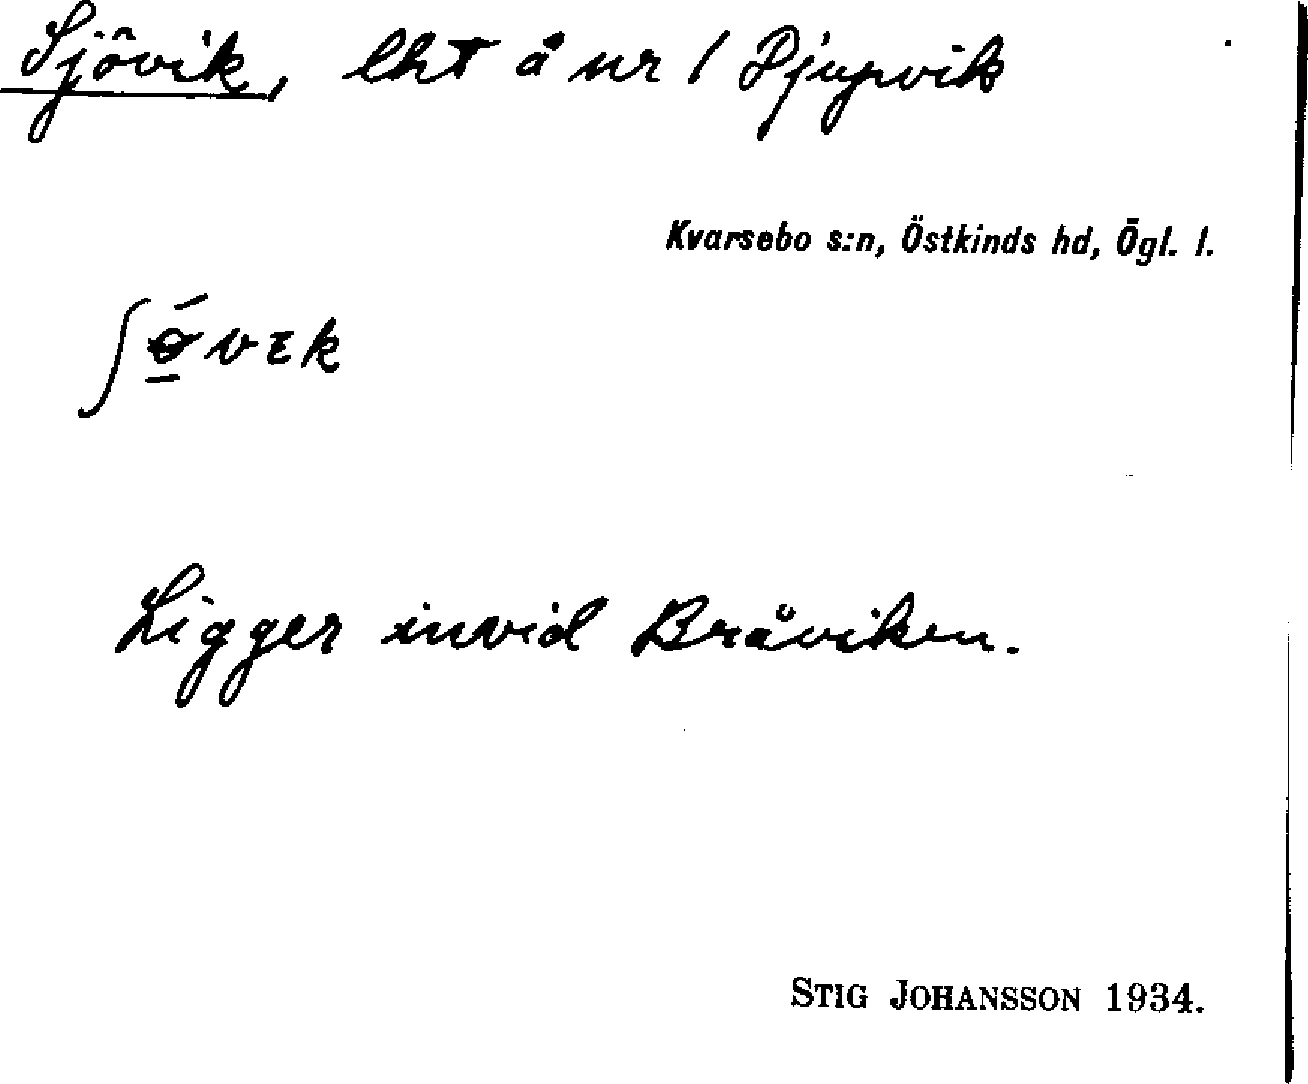 Sjövik, lht å nr 1 Djupvik
Kvarsebo s:n, Östkinds hd, Ögl. l.
Ligger invid Bråviken.
STIG JOHANSSON 1934.